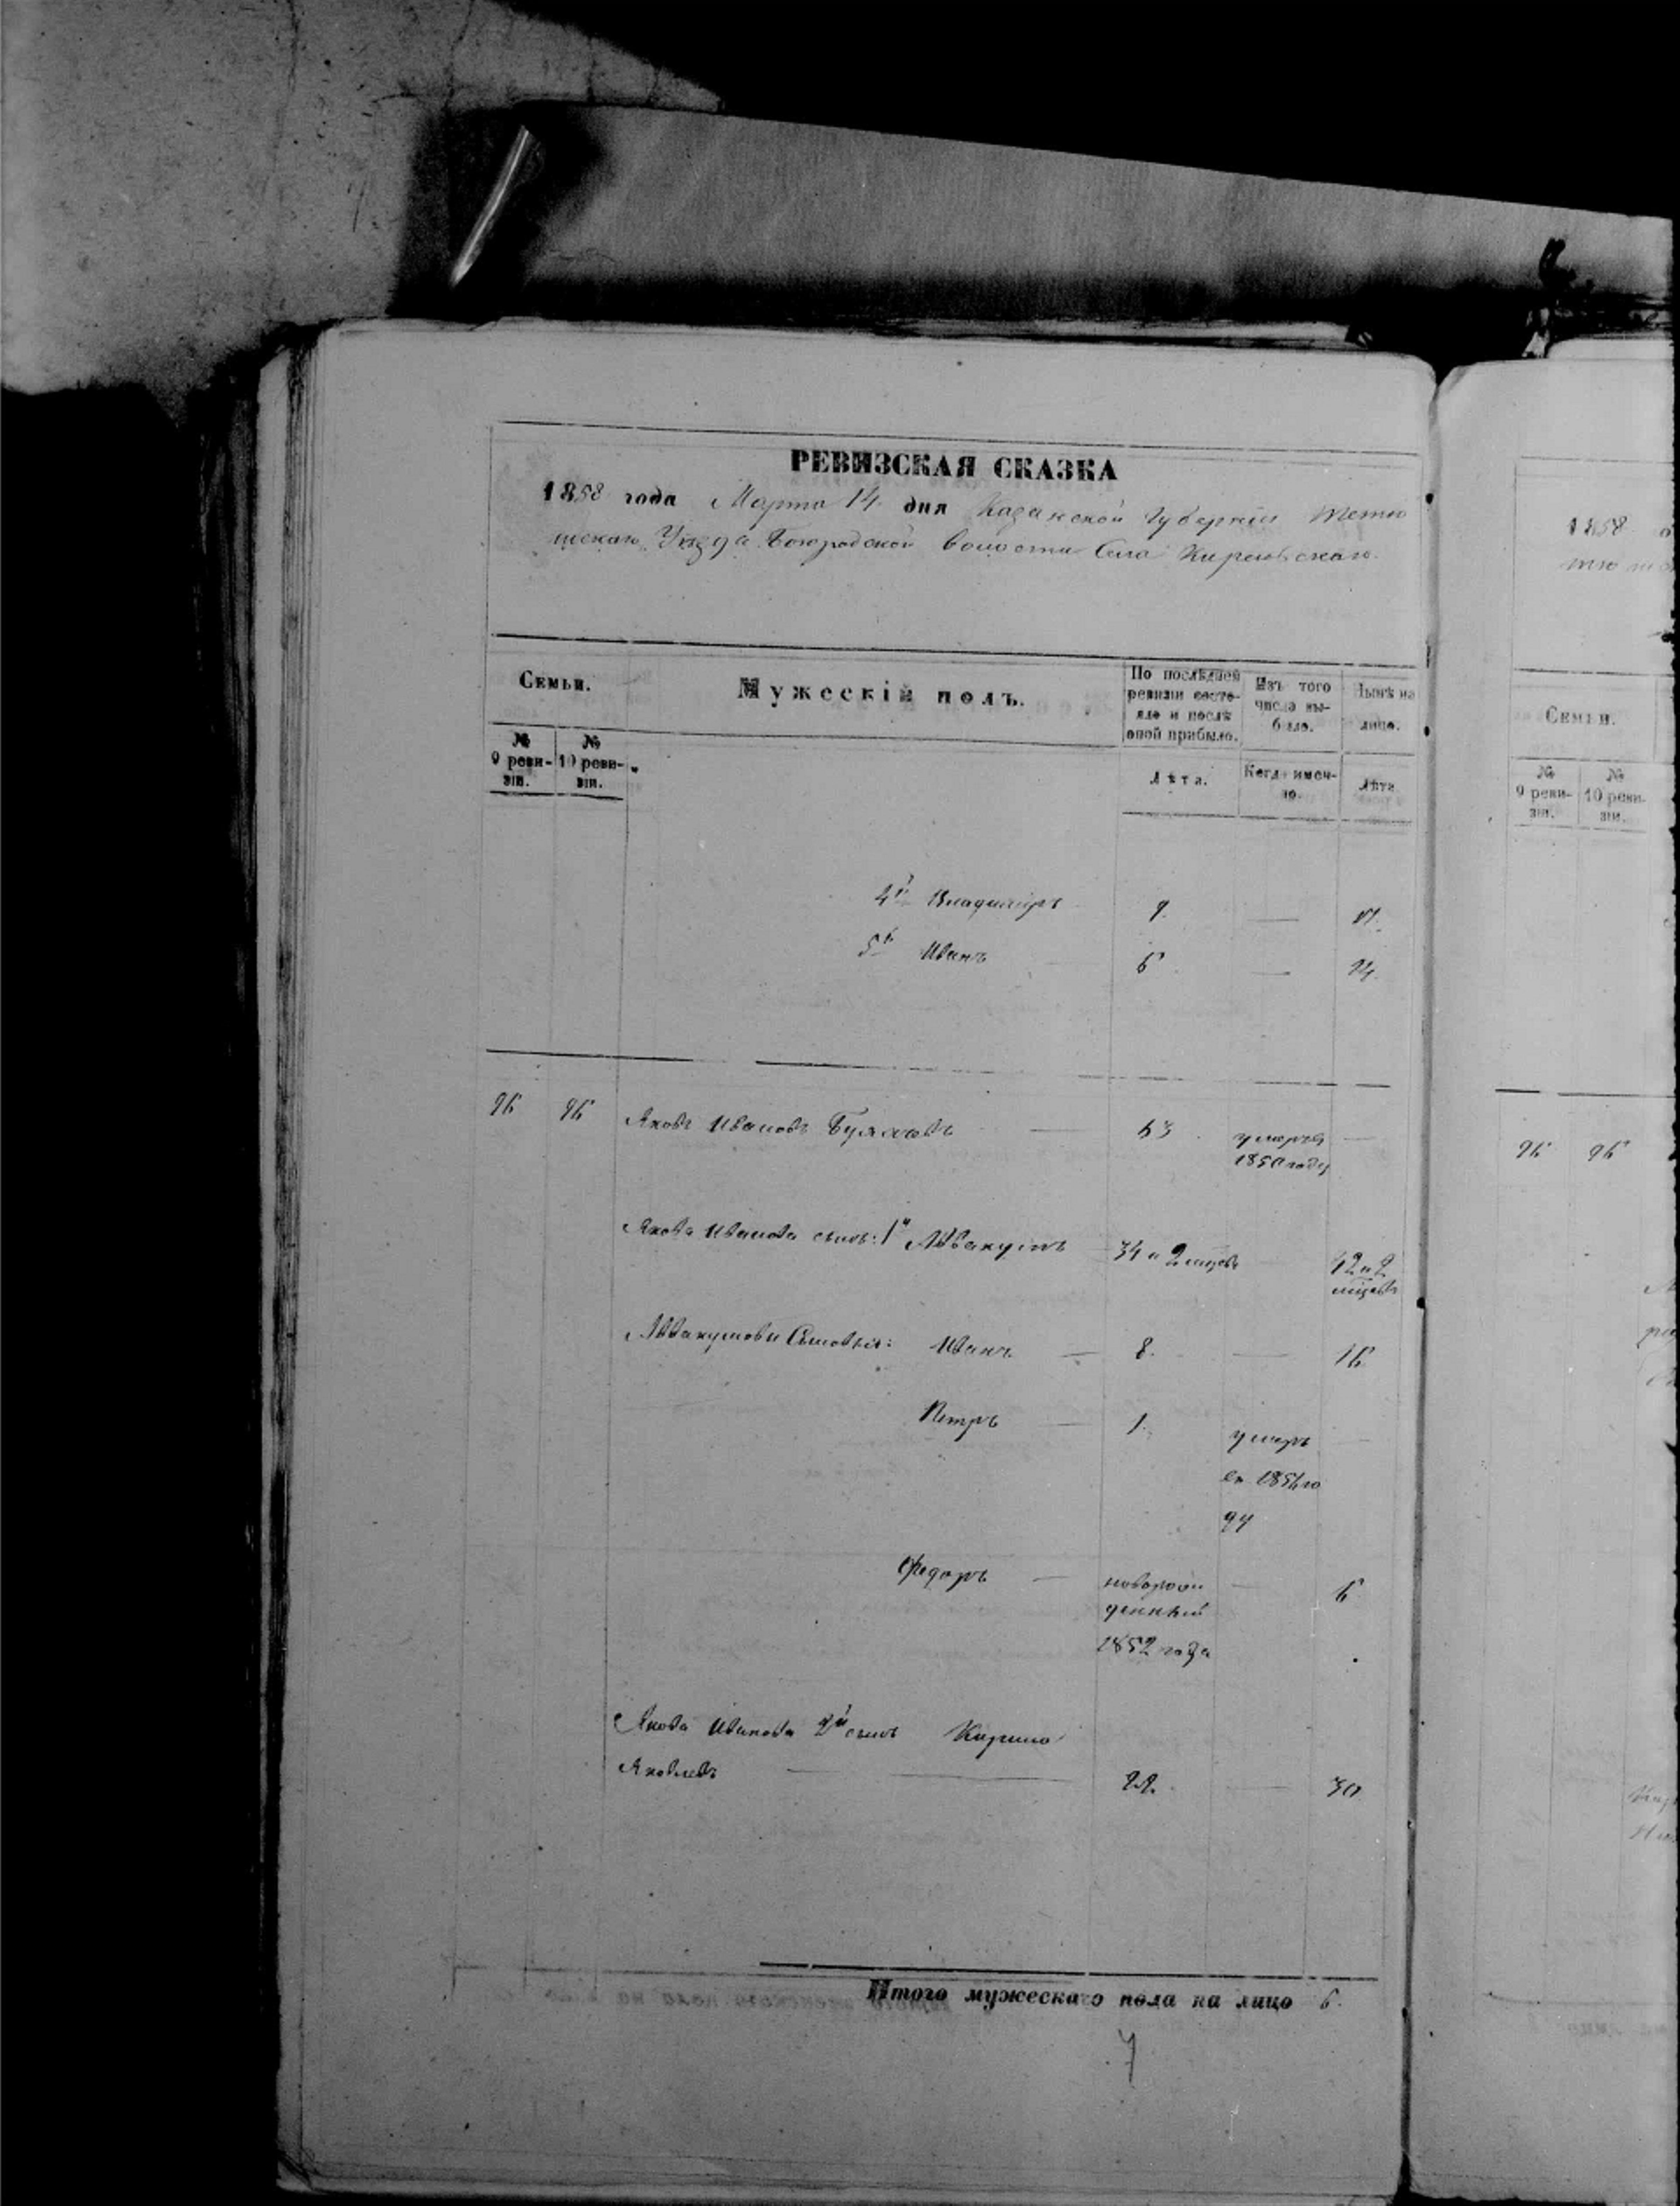 РЕВИЗСКАЯ СКАЗКА
1858 года Марта 14 дня Казанской Губерніи Тетю
шскаго Уѣзда Богородской волости Села
Семьи.
Мужескій полъ.
По послѣдней ревизіи состояло и послѣ оной прибыло.
Изъ того числа выбыло.
Нынѣ на лицо.
№ 9 ревизіи.
№ 10 ревизіи.
Лѣта.
Когда именно.
Лѣта
4й Владиміръ 9.
5й Иванъ 6 14.
96 96 Яковъ Ивановъ 63 умеръ
1850 году
Якова Иванова сынъ: 1й Аввакумъ 34 и 2 мѣсѣ 42 и 2
мѣсѣ
Аввакумовы Сыновья: Иванъ 8. 16
Петръ 1. умеръ
въ го
ду
Федоръ новорож
денный 6
1852 года
Якова Иванова 2й сынъ
Яковлевъ 22. 30
Итого мужескаго пола на лицо 6.
7
1858
Семьи.
№ 9 ревизіи.
№ 10 ревизіи.
96 96